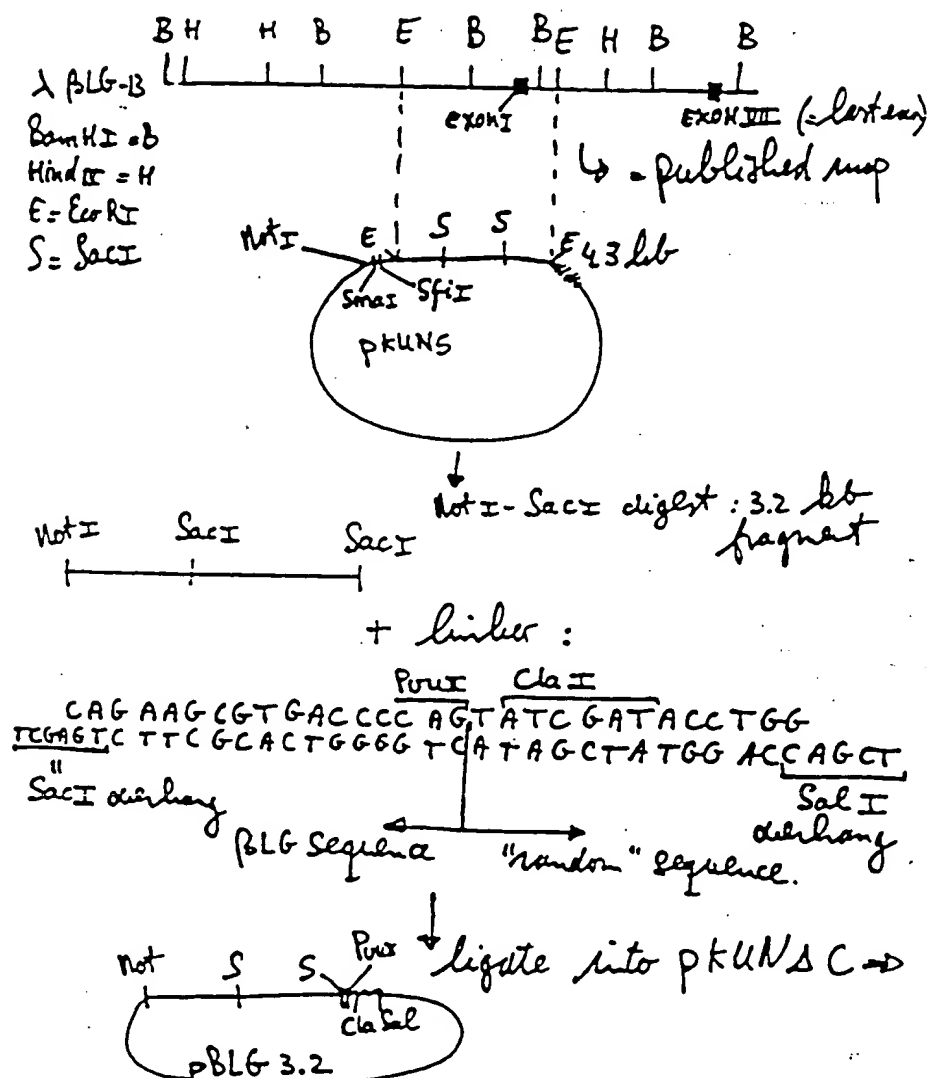 B H H B E B B E H B B
λ βLG-13
exonI EXON VII (=last exon)
BamHI = B
↳ = published map
Hind III = H
E = EcoRI
S = SacI
NotI E S S E 4.3 kb
SmaI SfiI
pKUN5
NotI-SacI digest : 3.2 kb
fragment
NotI SacI SacI
+ linker :
PvuI ClaI
CAG AAG CGT GACCCC AGTATCGATACCTGG
TCGAGTC TTCGCACTGGGG TCATAGCTATGG ACCCAGCT
"
SacI overhang
SalI
overhang
βLG Sequence "random" sequence.
ligate into pKUNΔC ⇒
Not S S PvuI
Cla Sal
pBLG 3.2